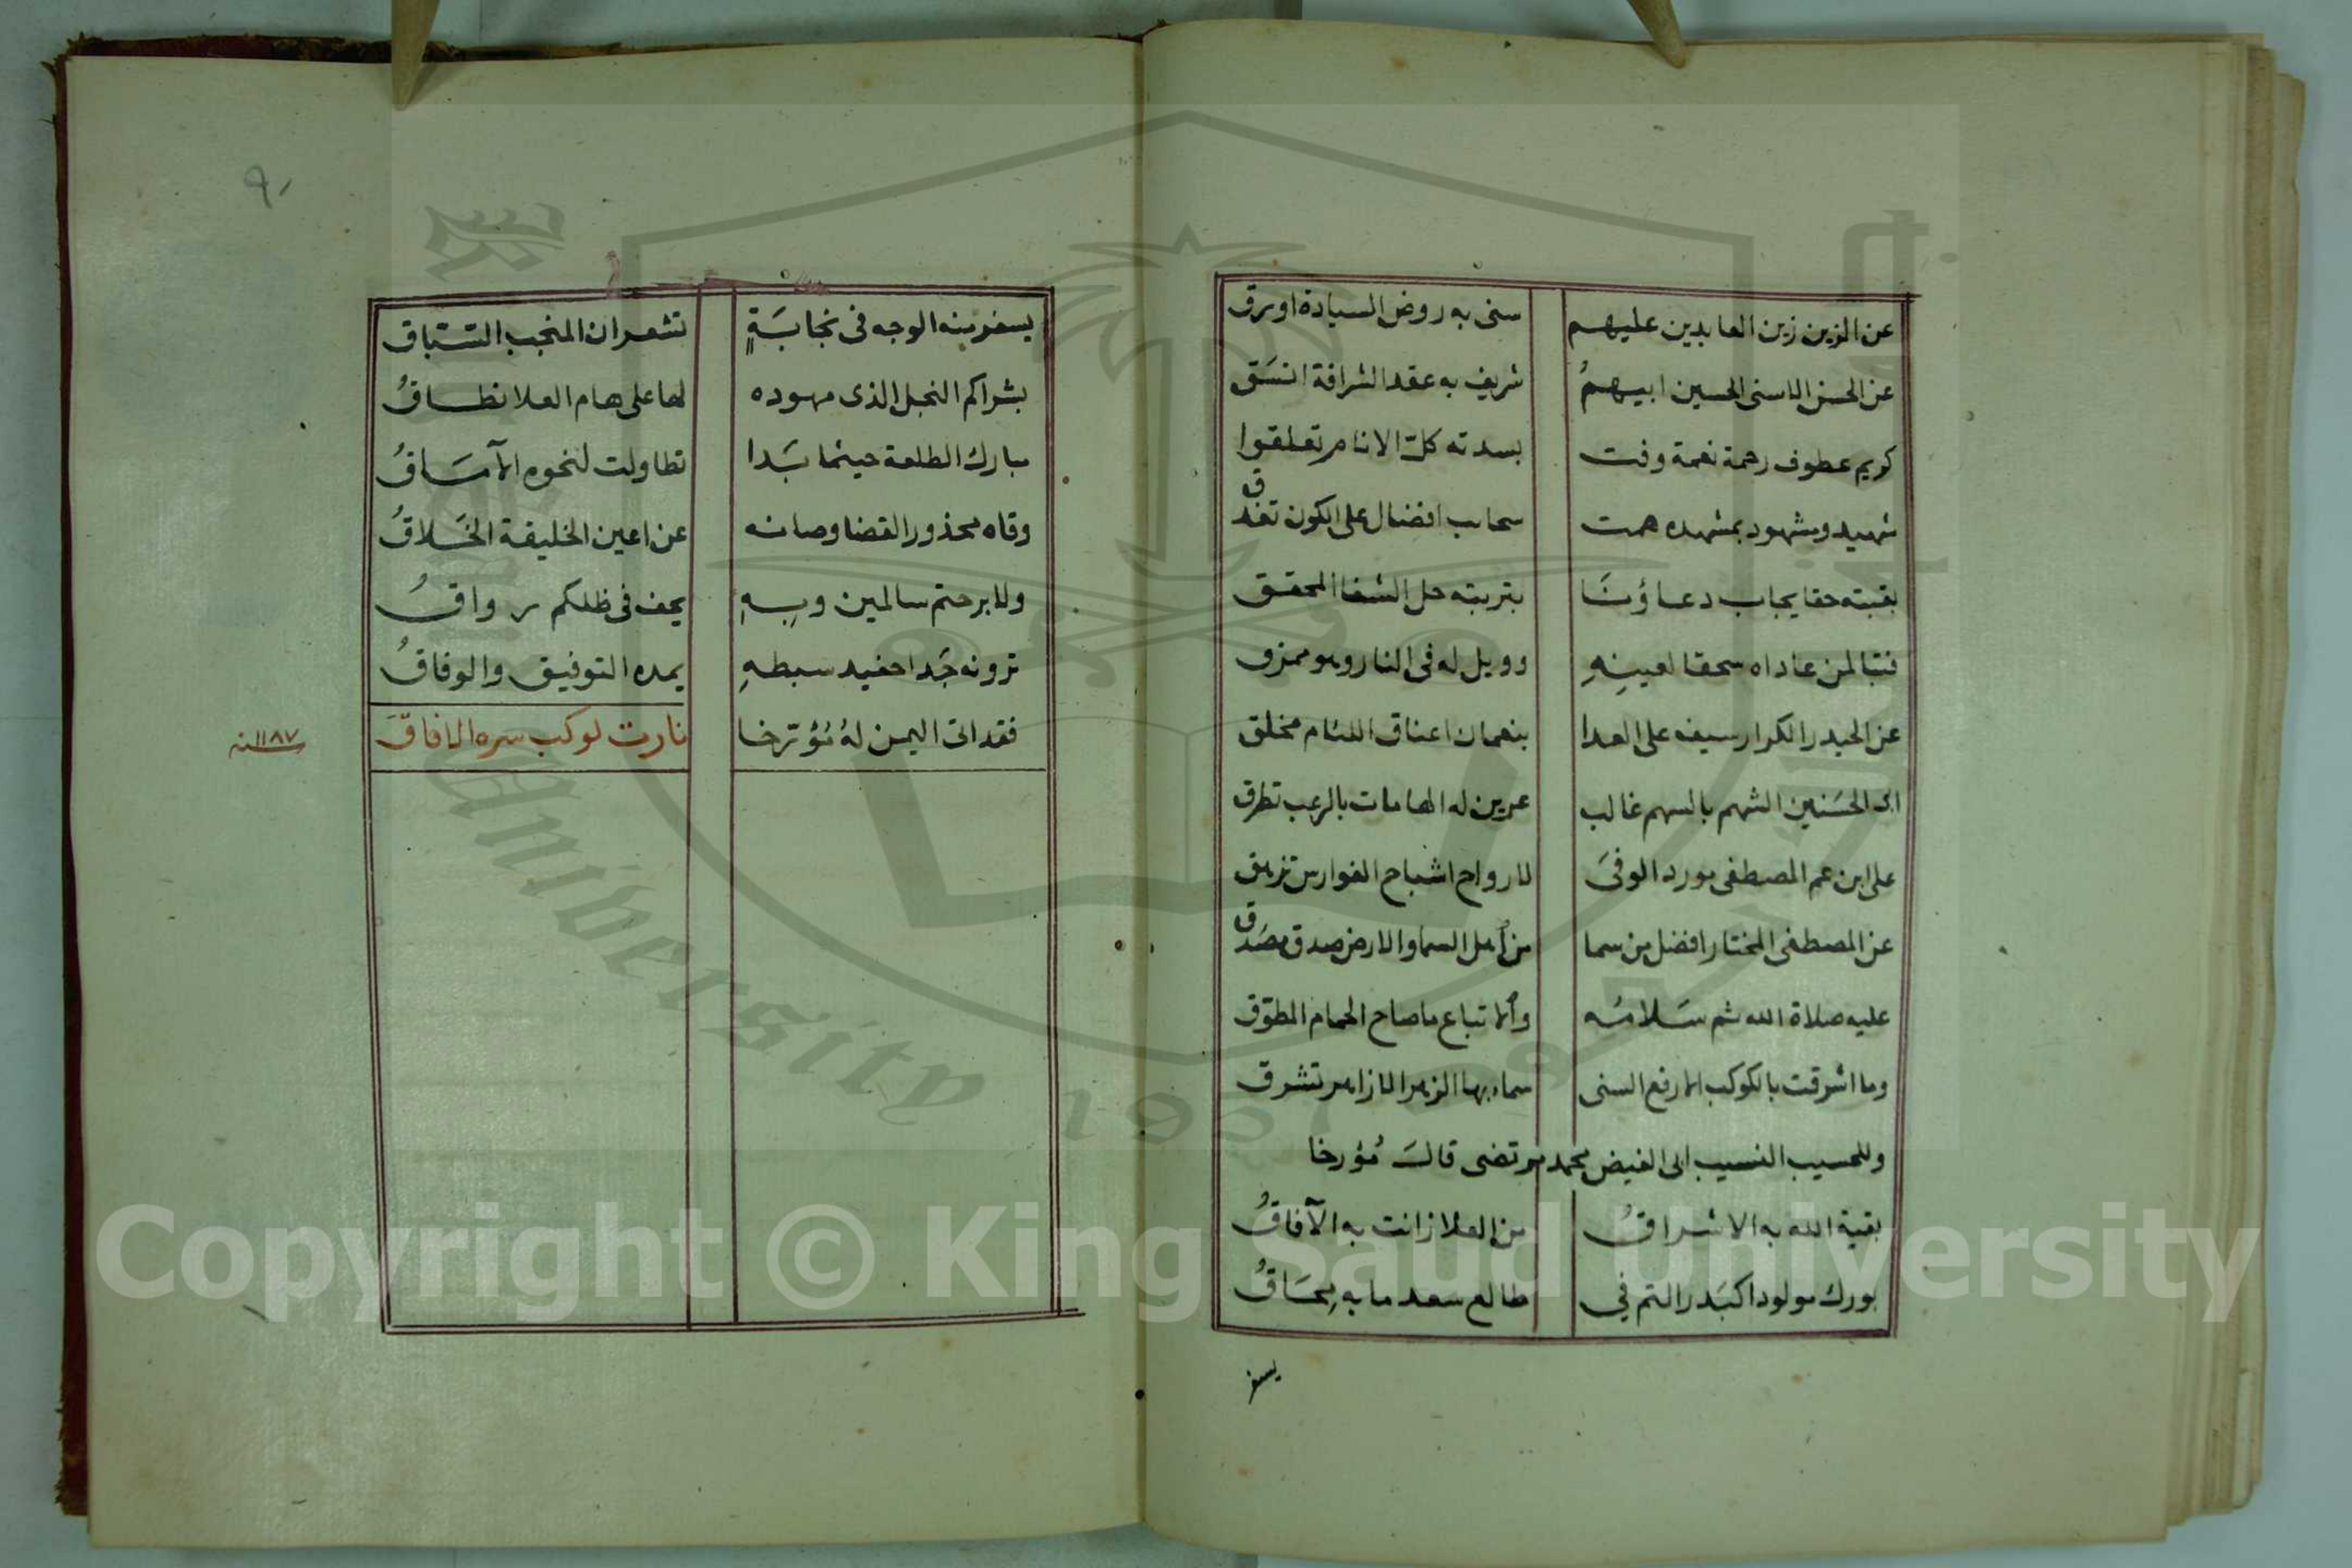 عن الزين زين العابدين عليهم سنى به روض السيادة اورق
عن الحسن الاسنى الحسين ابيهمُ شريف به عقد الشرافة اتسَق
كريم عطوف رحمة نعمة وفت بسدته كلّ الانام تعلقوا
شهيد ومشهود بمشهده همت سحاب افضال على الكون تغدق
بقبته حقا يجاب دعاؤنَا بتربته حل الشفا المحقق
فتبا لمن عاداه سحقا لعينِهِ وويل له فى النار وهو ممزق
عن الحيدر الكرار سيفه على العدا بنعمان اعناق اللئام مخلق
اب الحسَنين الشهم بالسهم غالب عرين له الهامات بالرعب تطرق
على ابن عم المصطفى مورد الوفىَ لارواح اشباح الفوارس تزهق
عن المصطفى المختار افضل من سما من أهل السما والارض صدق مصَدق
عليه صلاة الله ثم سَلامُه وألاتباع ما صاح الحمام المطوّق
وما اشرقت بالكوكب الارفع السنى سماء بها الزهر الازاهر تشرق
وللحسيب النسيب ابى الفيض محمد مرتضى قالَ مُؤرخا
بقية الله به الاشراقُ من العلا زانت به الآفاقُ
بورك مولودا كبَدر التم في طالع سعد ما به مِحَاقُ
يسفر
٩٠
يسفر منه الوجه فى نجابَةٍ تشعر ان المنجب السّبّاق
بشراكم النجل الذى مهوده لها على هام العلا نطاقُ
مبارك الطلعة حيثما بَدا تطاولت لنحوه الآمَاقُ
وقاه محذور القضا وصانه عن اعين الخليقة الخَلاقُ
ولا برحتم سالمين وبِهِ يحف فى ظلكم رواقُ
ترونه جَدا حفيد سبطهِ يمده التوفيق والوفاقُ
فقد اتى اليمن لهُ مُؤرّخا نارت لوكب سره الافاقَ
١١٨٧ سنه
Copyright © King Saud University
University 1957